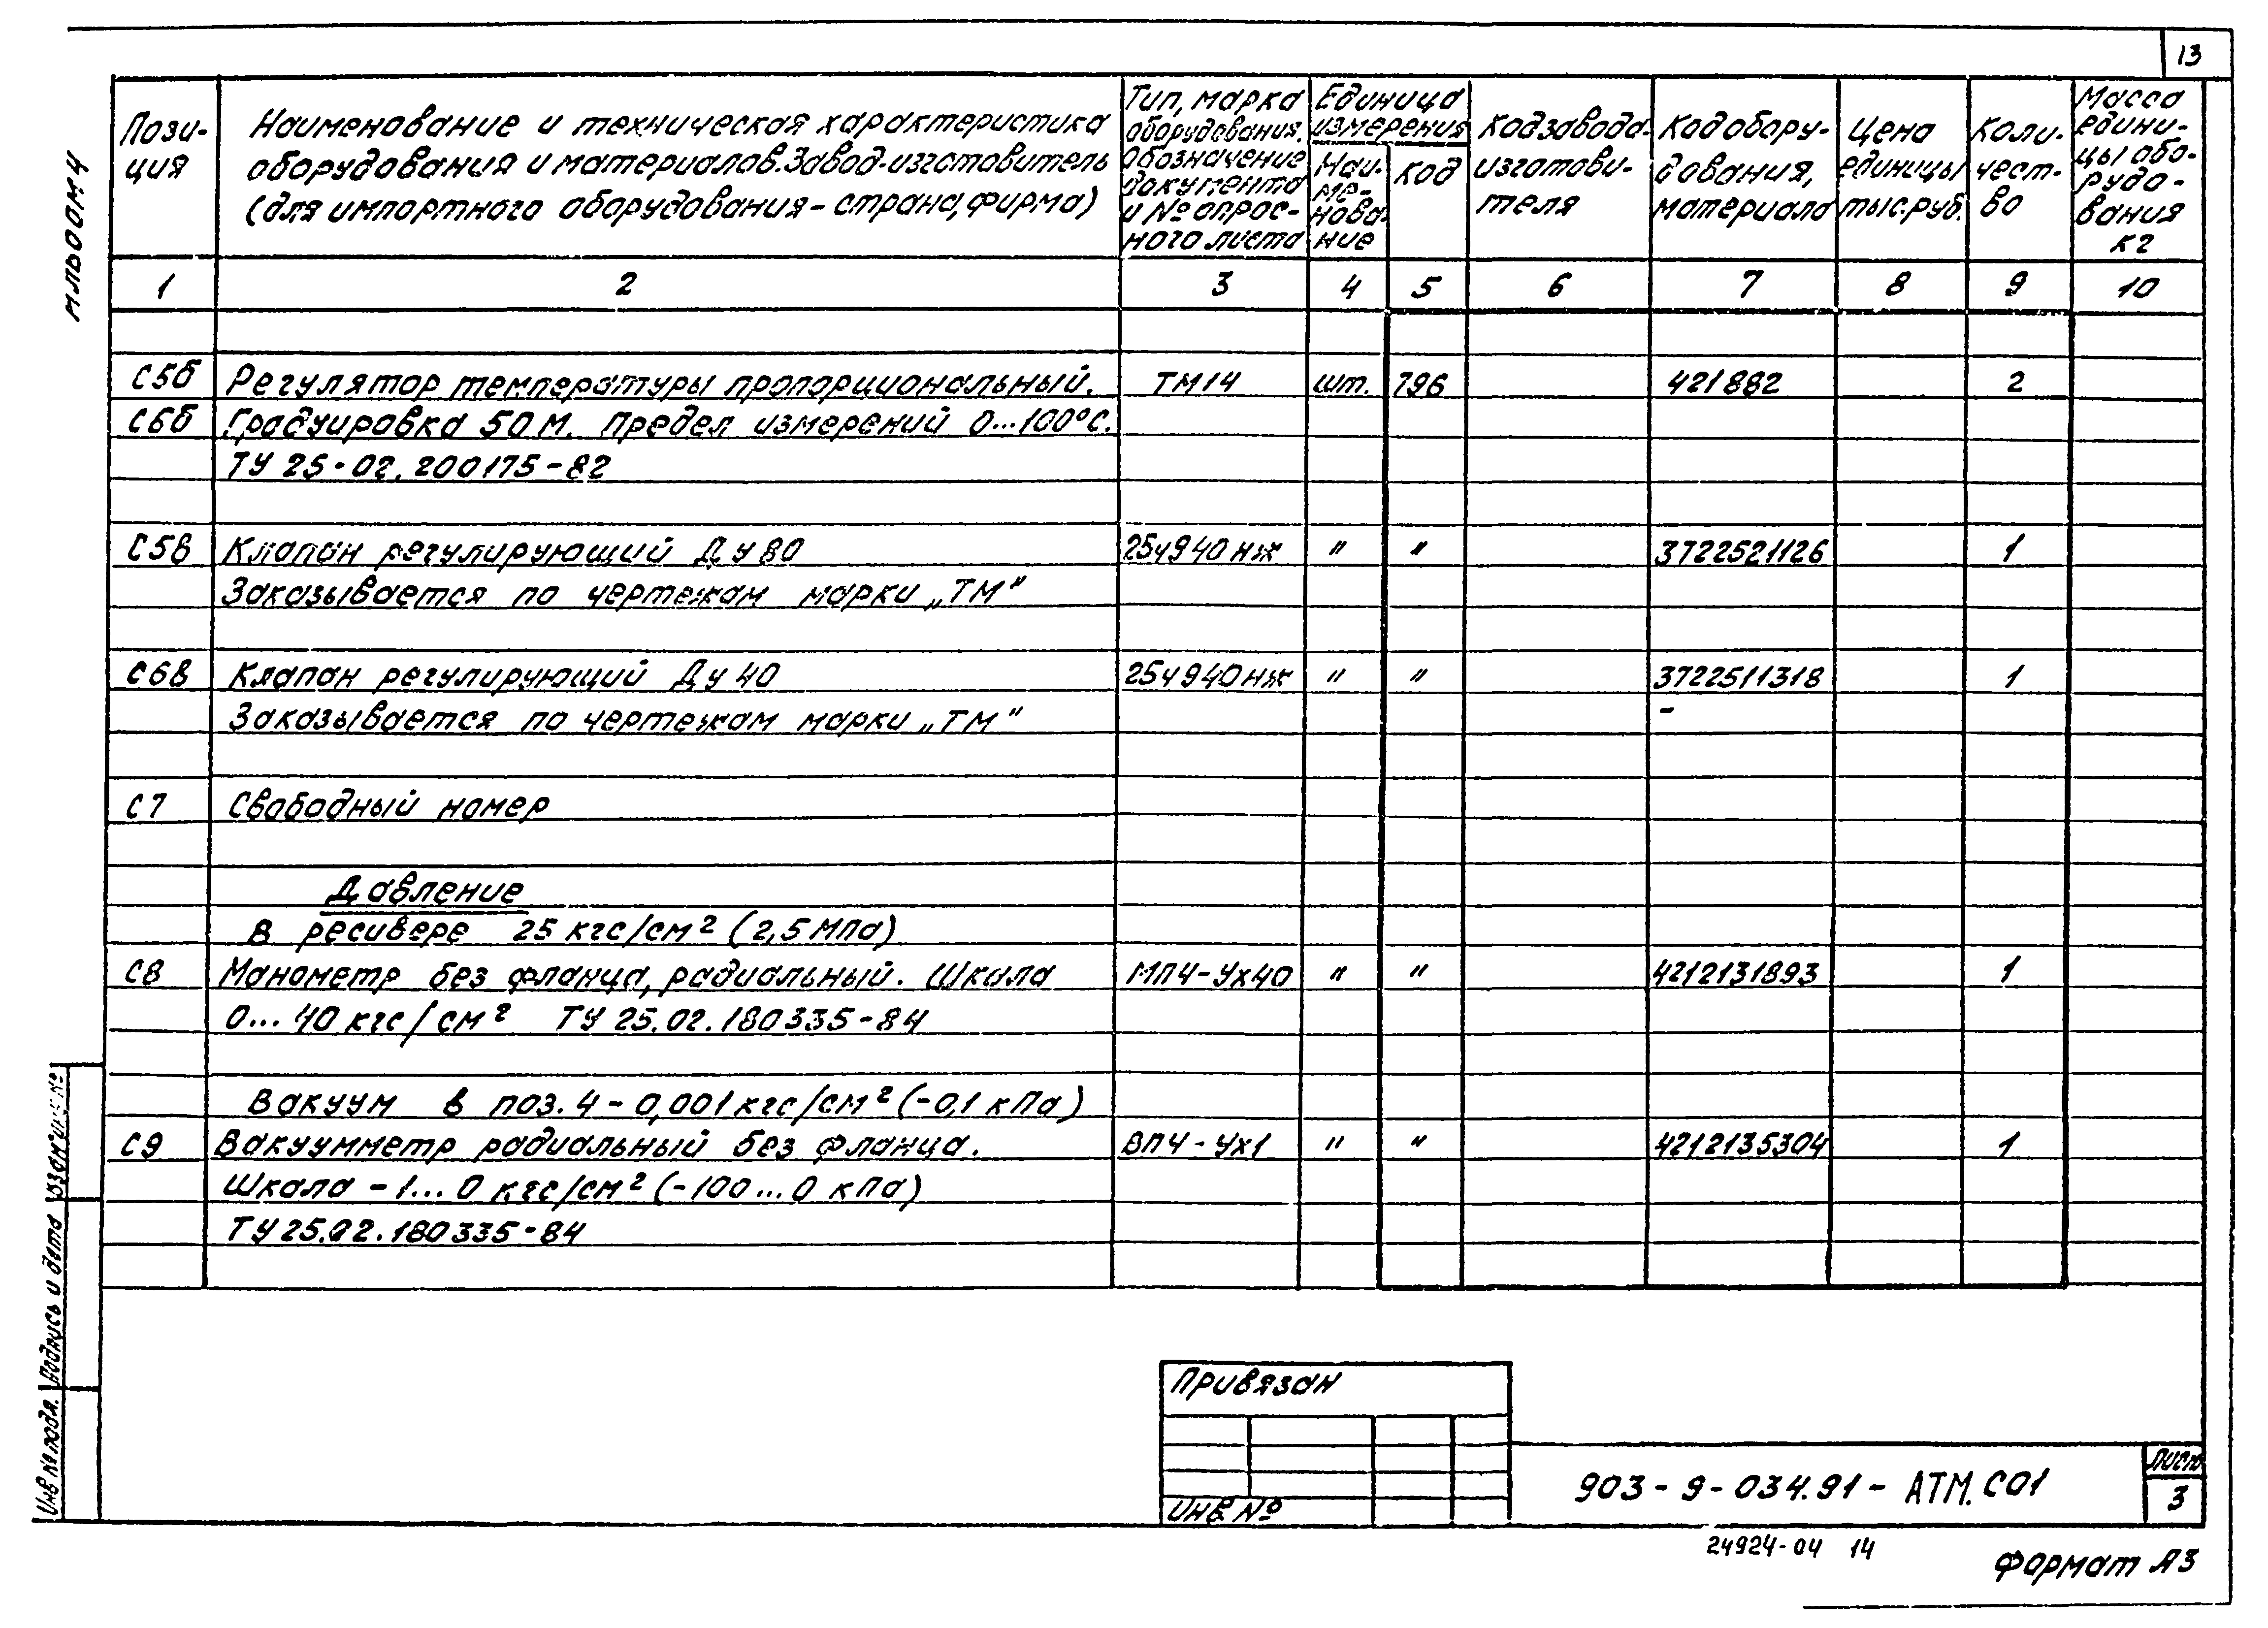 13
Альбом 4
Пози-
ция
Наименование и техническая характеристика
оборудования и материалов. Завод-изготовитель
(для импортного оборудования - страна, фирма)
Тип, марка
оборудования.
Обозначение
документа
и № опрос-
ного листа
Единица
измерения
Наи-
ме-
нова-
ние
код
Код завода-
изготови-
теля
Код обору-
дования,
материала
Цена
единицы
тыс.руб.
Коли-
чест-
во
Масса
едини-
цы обо-
рудо-
вания
кг
1 2 3 4 5 6 7 8 9 10
С5б Регулятор температуры пропорциональный. ТМ14 шт. 796 421882 2
С6б Градуировка 50М. Предел измерений 0...100°С.
ТУ 25-02.200175-82
С5в Клапан регулирующий Ду 80 25ч940нж " " 3722521126 1
Заказывается по чертежам марки „ТМ"
С6в Клапан регулирующий Ду 40 25ч940нж " " 3722511318 1
Заказывается по чертежам марки „ТМ" -
С7 Свободный номер
Давление
в ресивере 25 кгс/см² (2,5 МПа)
С8 Манометр без фланца, радиальный. Шкала МП4-Ух40 " " 4212131893 1
0...40 кгс/см² ТУ 25.02.180335-84
Вакуум в поз. 4 - 0,001 кгс/см² (-0,1 кПа)
С9 Вакуумметр радиальный без фланца. ВП4-Ух1 " " 4212135304 1
Шкала -1...0 кгс/см² (-100...0 кПа)
ТУ 25.02.180335-84
Взам. инв. №
Подпись и дата
Инв № подл.
Привязан
Инв №
903-9-034.91-АТМ.С01
Лист
3
24924-04 14
Формат А3